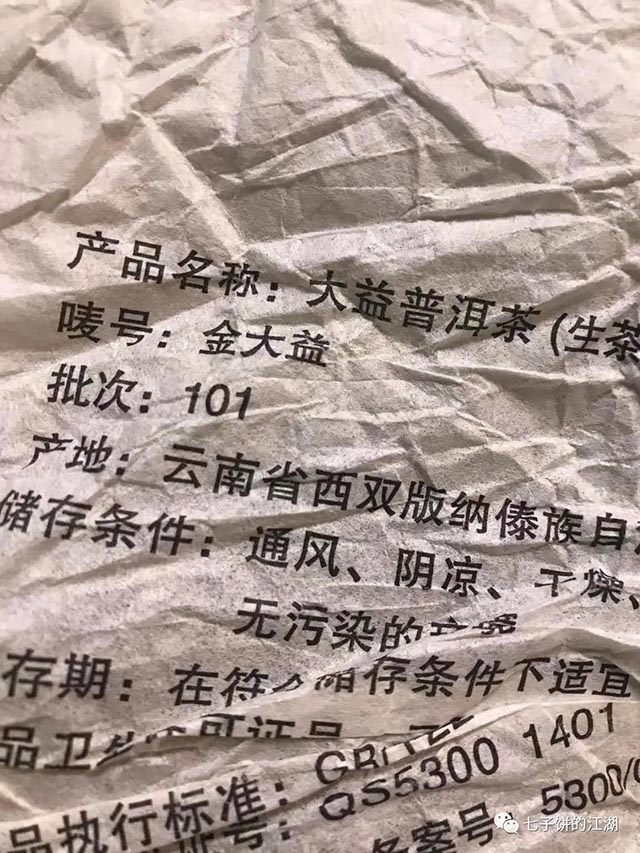 产品名称：大益普洱茶(生茶
唛号：金大益
批次：101
产地：云南省西双版纳傣族自
储存条件：通风、阴凉、干燥、
无污染的
存期：在符 储存条件下适宜
品卫生许可证号
品执行标准：GB/T22
号：QS5300 1401
备案号 5300/
七子饼的江湖